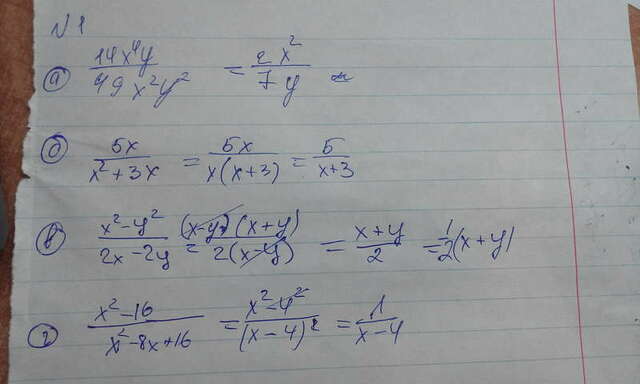 N 1
а) 14x⁴y / 49x²y² = 2x² / 7y
б) 5x / x² + 3x = 5x / x(x+3) = 5 / x+3
в) x² - y² / 2x - 2y = (x-y)(x+y) / 2(x-y) = x+y / 2 = 1/2 (x+y)
г) x² - 16 / x² - 8x + 16 = x² - 4² / (x-4)² = 1 / x-4